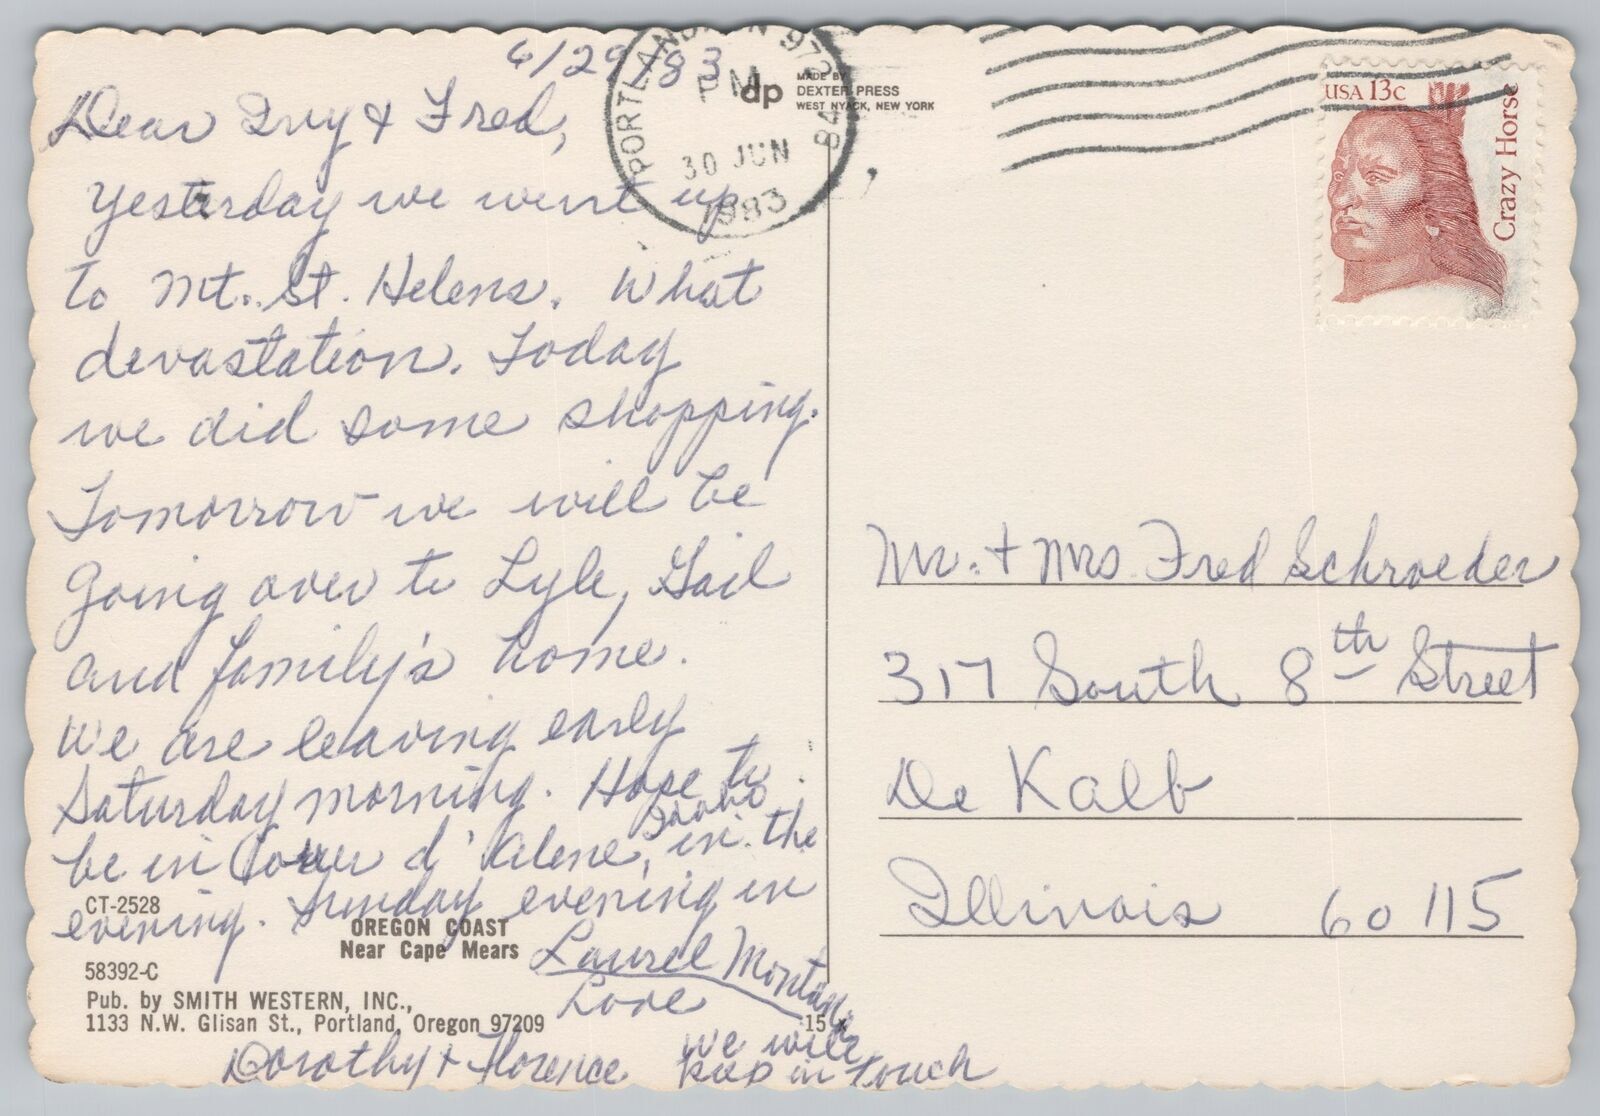 6/29/83
Dear Ivy & Fred,
Yesterday we went up
to Mt. St. Helens. What
devastation. Today
we did some shopping.
Tomorrow we will be
going over to Lyle, Gail
and family's home.
We are leaving early
Saturday morning. Hope to
be in Couer d'Alene, Idaho in the
evening. Sunday evening in
Laurel Montana
Love
Dorothy & Florence
we will
keep in touch
CT-2528
OREGON COAST
Near Cape Mears
58392-C
Pub. by SMITH WESTERN, INC.,
1133 N.W. Glisan St., Portland, Oregon 97209
15
dp
MADE BY
DEXTER PRESS
WEST NYACK, NEW YORK
PORTLAND
PM
30 JUN
1983
USA 13c
Crazy Horse
Mr. + Mrs. Fred Schroeder
317 South 8th Street
De Kalb
Illinois 60115